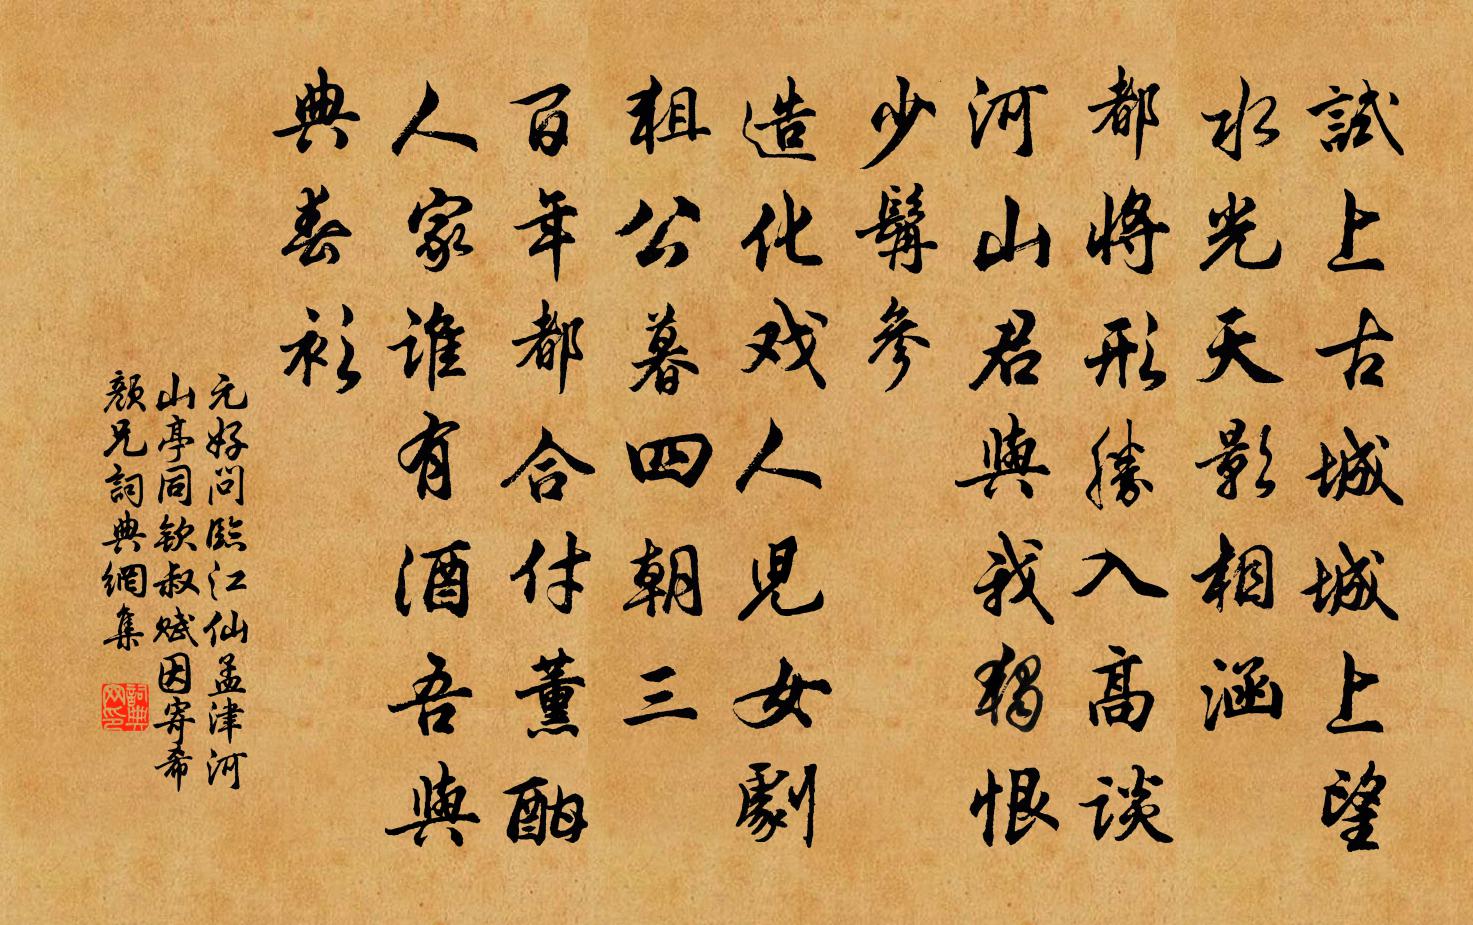 試上古城城上望
水光天影相涵
都將形勝入高談
河山君與我獨恨
少髯參
造化戏人兒女劇
狙公暮四朝三
百年都合付薰酣
人家誰有酒吾與
典春衫
元好問臨江仙孟津河
山亭同欽叔賦因寄希
顏兄詞典網集
詞典
网印